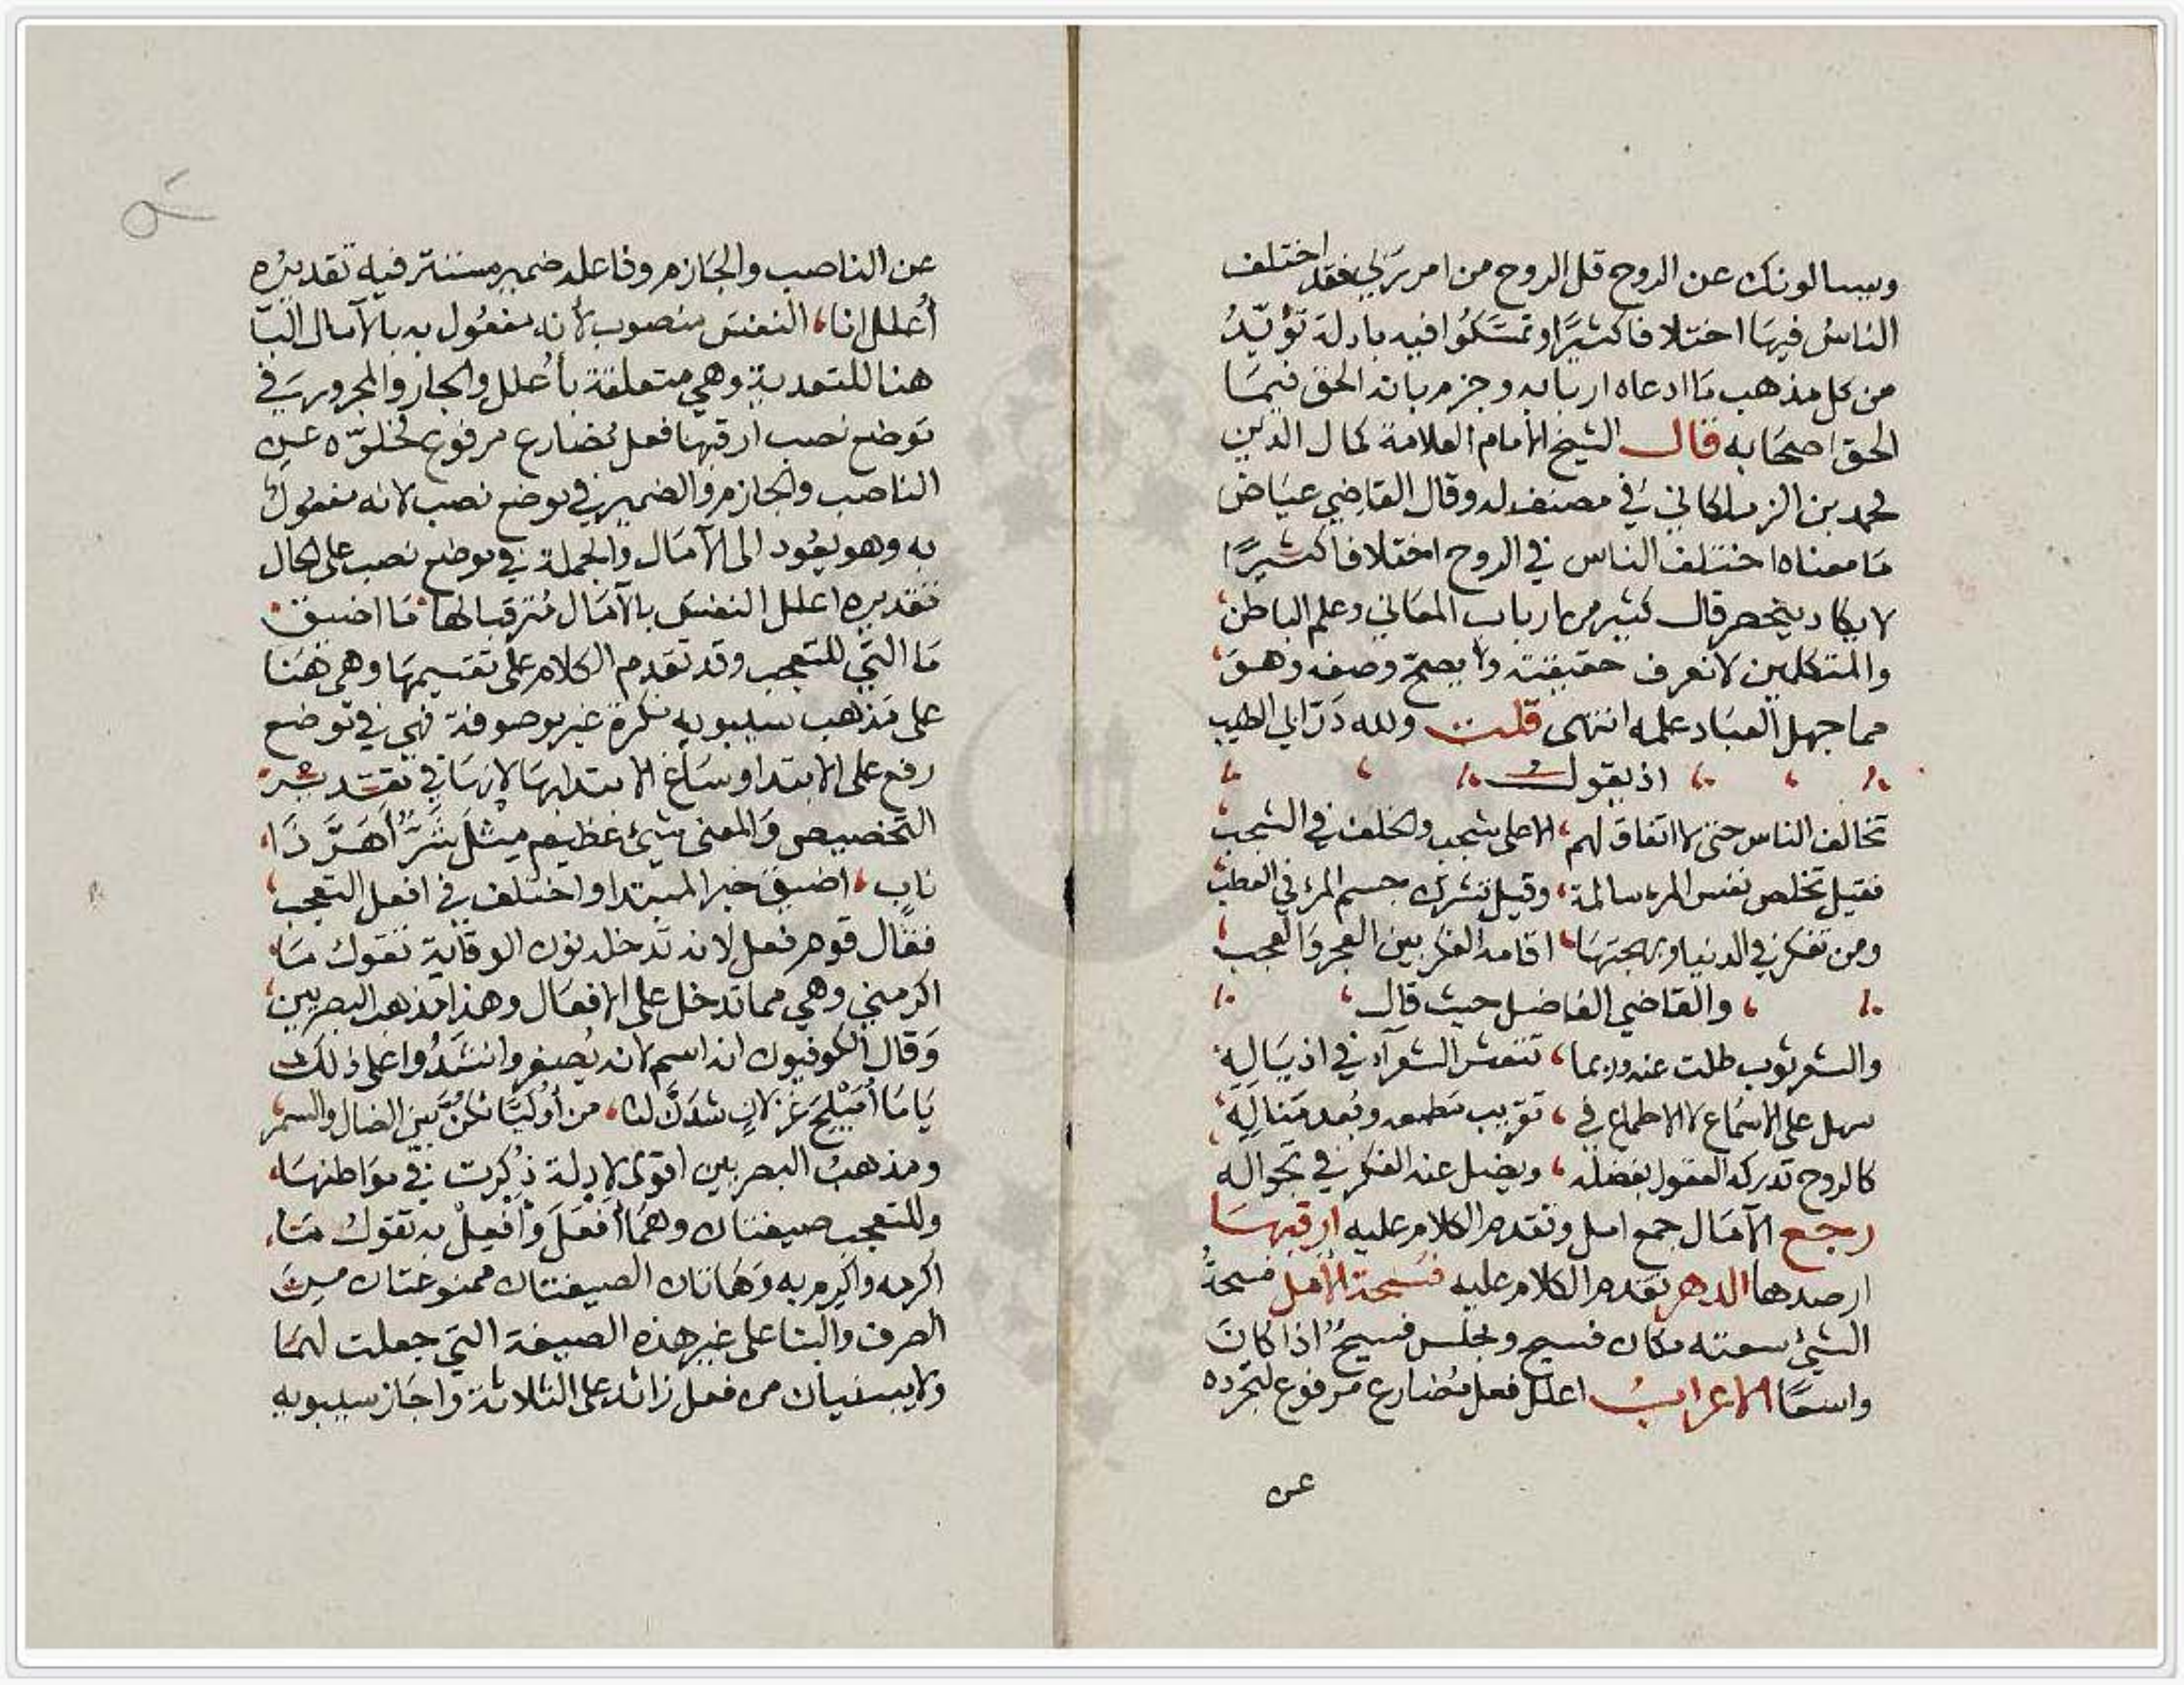 ويسالونك عن الروح قل الروح من امر ربي فقد اختلف
الناسُ فيهَا اختلافا كثيرًا وتمسّكُوا فيه بادلة تؤيّدُ
من كل مذهب مَا ادعاه اربابه وجزم بان الحق فيمَا
الحق اصحَابه قال الشيخ الامام العلامة كمال الدين
محمد بن الزملكاني في مصنف له وقال القاضي عيَاض
مَا معناه اختلف الناس في الروح اختلافا كثيرًا
لا يكاد ينحصر قال كثير من ارباب المعَاني وعلم الباطن
والمتكلمين لا نعرف حقيقته ولا يصحّ وصفه وهوَ
مما جهل العبَاد علمه انتهى قلت ولله دَرّ ابي الطيب
اذ يقول
تخالف الناس حتى لا اتفاق لهم، الا على شجب والخلف في الشجب
فقيل تخلص نفس المرء سالمة، وقيل تشرك جسم المرء في العطب
ومن تفكر في الدنيا وبهجتهَا، اقامه الفكر بين العجز والعجب
والقاضي الفاضل حيث قال
والشعر ثوب طلت عنه وربما، تتعثر الشعرآء في اذيَالِهِ
سهل على الاسمَاع لا الاطماع في، تقريب مَطمعه وبُعد مَنالِهِ
كالروح تدركه العقول بفضله، ويضل عنه الفكر في تجواله
رجع الآمَال جمع امل وتقدم الكلام عليه ارقبهَا
ارصدها الدهر تقدم الكلام عليه فسحة الأمل فسحةُ
الشيْ سعته مكان فسيح ومجلس فسيحٌ اذا كانَ
واسعًا الاعرابُ اعلل فعل مُضارع مرفوع لتجرده
عن
عن الناصب والجَازم وفاعله ضمير مستتر فيه تقديرُه
أُعلل انا، النفسَ منصوب لأنه مفعُول به بالآمال البَا
هنا للتعدية وهي متعلقة بأُعلل والجار والمجرور في
مَوضع نصب ارقبهَا فعل مُضارع مرفوع لخلوّه عن
الناصب والجازم والضمير في موضع نصب لانه مفعولٌ
به وهو يَعُود الى الآمَال والجملة في موضع نصب على الحال
تقديره اعلل النفسَ بالآمَال مُترقبا لها مَا اضيق
مَا التي للتعجب وقد تقدم الكلام على تقسيمهَا وهي هُنا
على مَذهب سيبويه نكرة غير موصوفة فهي في مَوضع
رفع على الابتدا وسَاغ الابتدا بهَا لانهَا في تقدير
التخصيص وَالمعنى شيئ عَظيم مِثْل شَرٌّ أَهَرَّ ذَا
ناب، اضيق خبر المبتدا واختلف في افعل التعجب
فقال قوم فعل لانه تدخله نون الوقاية تقول مَا
اكرمني وهي مما تدخل على الافعَال وهذا مَذهب البصريين
وَقال الكوفيون انه اسم لانه يُصغر وانشَدُوا على ذلك
يَا مَا أُمَيْلِحَ غزلانٍ شَدَنَّ لنا، من أوليَّائكنَّ بَين الضال والسمر
ومذهبُ البصريين اقوى لادلة ذُكرت في موَاطنهَا
وللتعجب صيغتان وهمَا أَفْعَلَ وَأَفْعِلْ به تقول مَا
اكرمه واكرِم به وَهَاتان الصيغتان ممنوعتان من
الصرف والبنا على غير هذه الصيغة التي جعلت لهمَا
ولا يبنيان من فعل زائد على الثلاثة واجَاز سيبويه